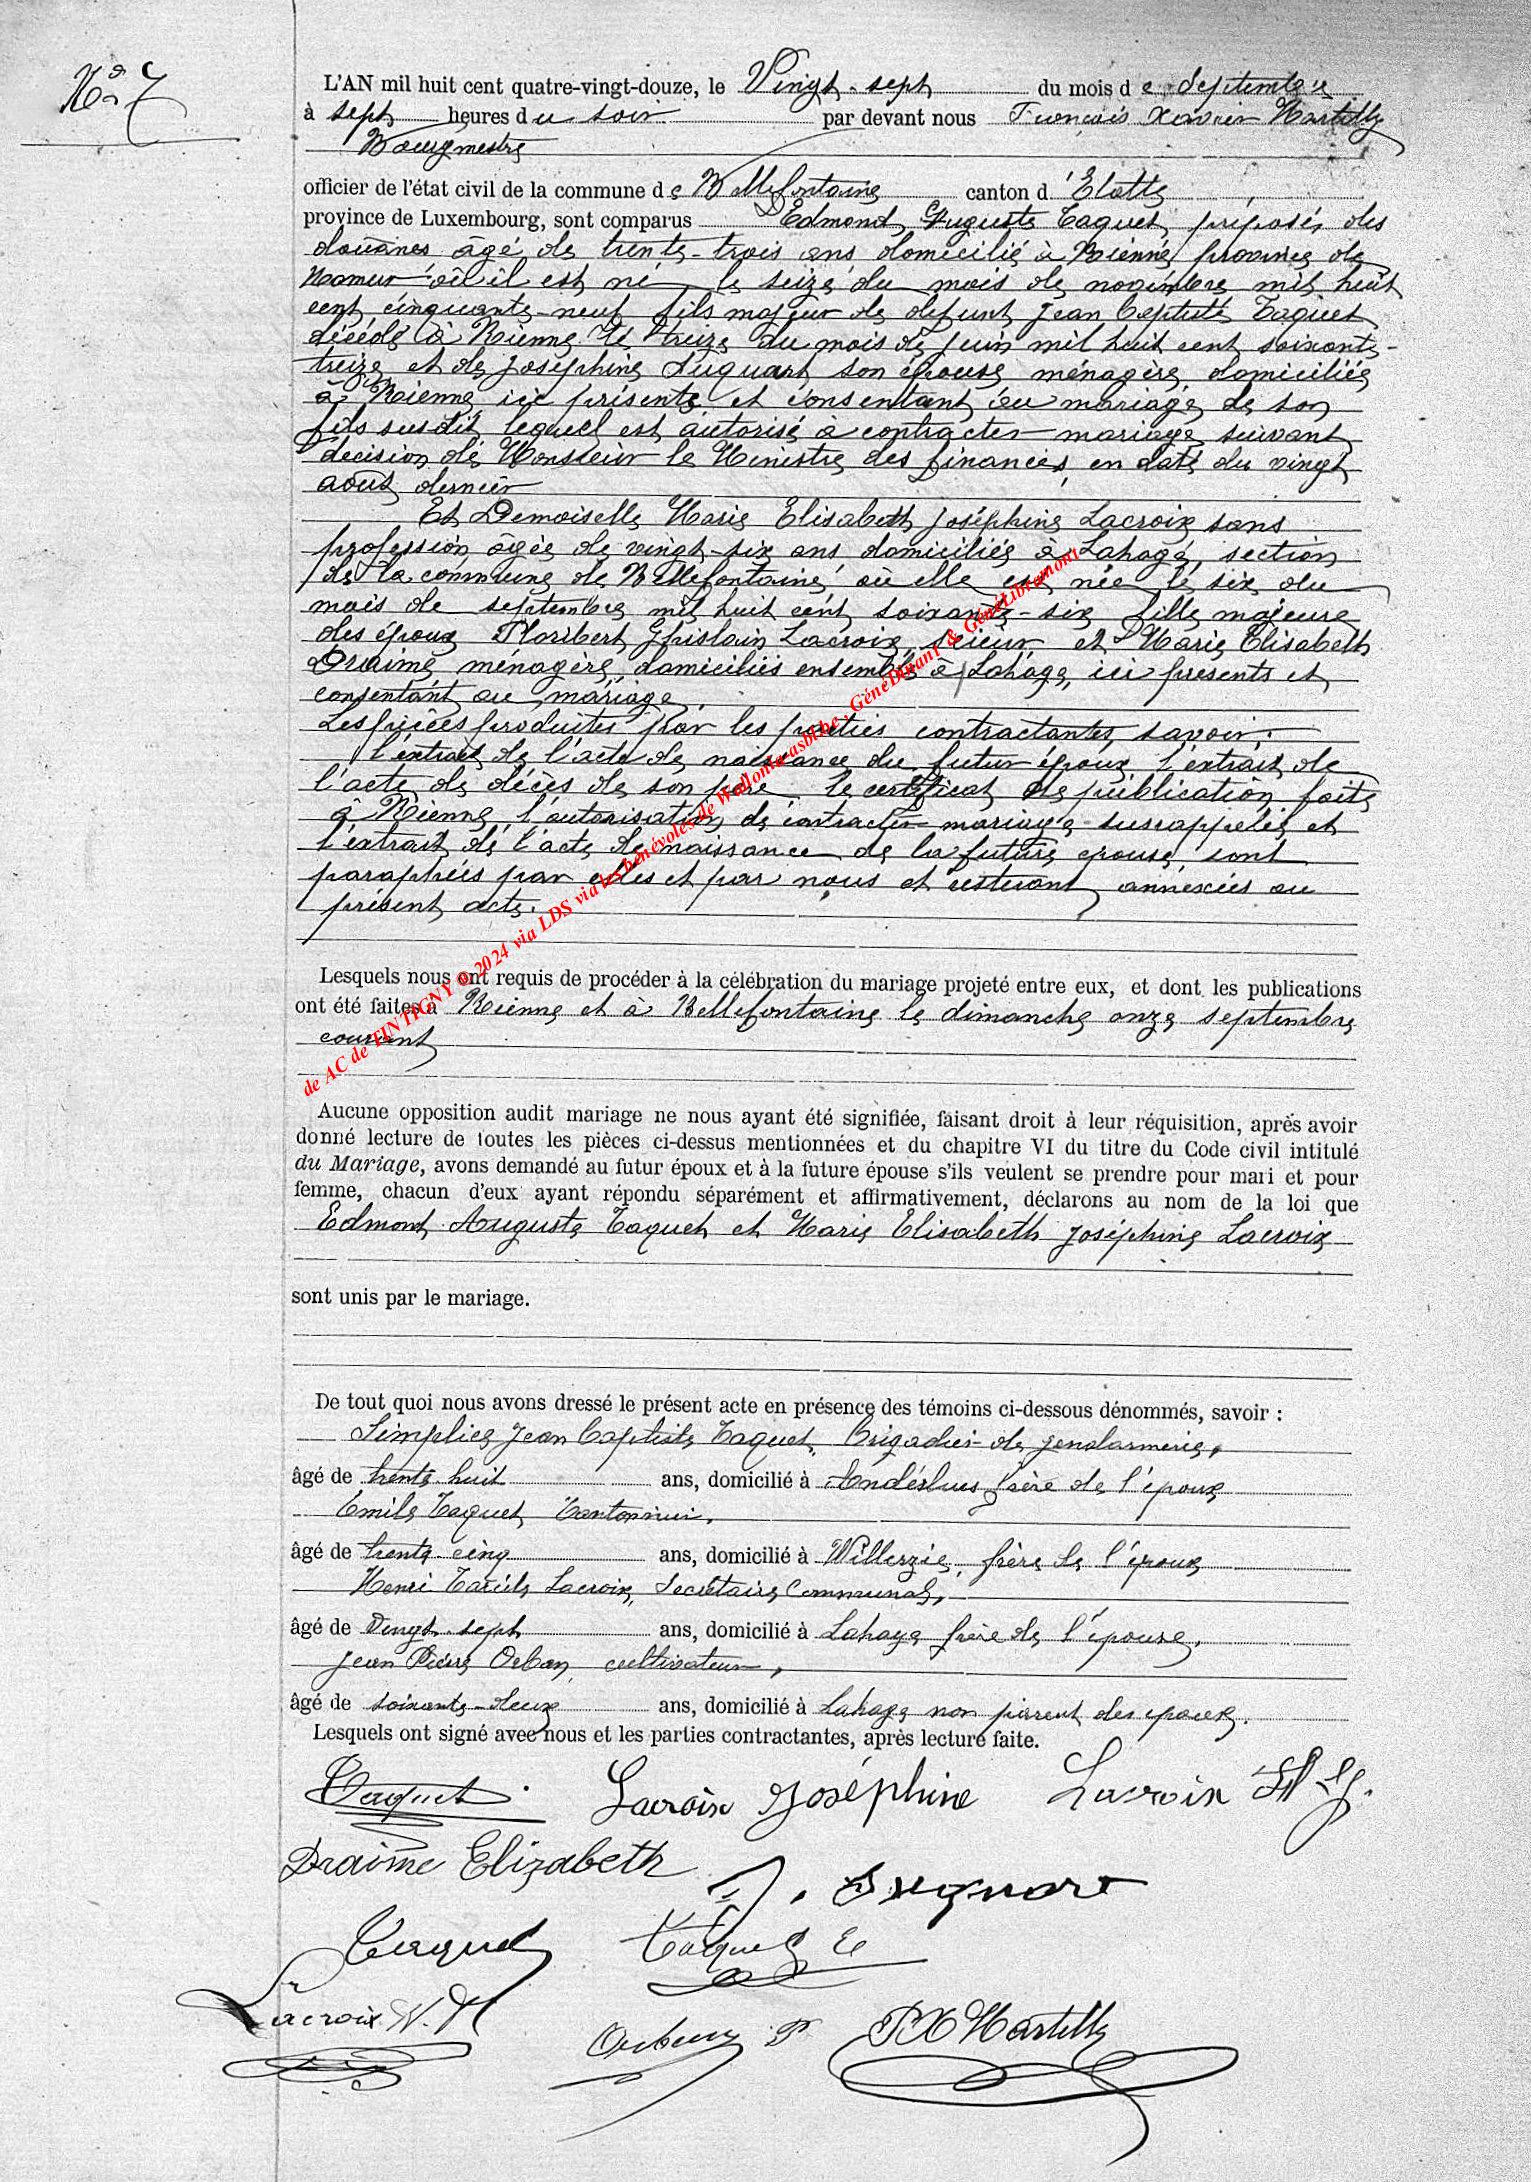 N° 7
L'AN mil huit cent quatre-vingt-douze, le Vingt-sept du mois de Septembre
à sept heures du soir par devant nous François Xavier Martilly
Bourgmestre
officier de l'état civil de la commune de Bellefontaine canton d'Etalle
province de Luxembourg, sont comparus Edmond Auguste Taquet, préposé des
douanes âgé de trente-trois ans domicilié à Rienne, province de
Namur où il est né le seize du mois de novembre mil huit
cent cinquante-neuf fils majeur de défunt Jean Baptiste Taquet
décédé à Rienne le treize du mois de juin mil huit cent soixante-
treize et de Joséphine son épouse ménagère domiciliée
à Rienne, ici présente et consentant au mariage de son
fils susdit, lequel est autorisé à contracter mariage suivant
décision de Monsieur le Ministre des finances, en date du vingt
août dernier
Et Demoiselle Marie Elisabeth Joséphine Lacroix sans
profession, âgée de vingt-six ans domiciliée à Lahage, section
de la commune de Bellefontaine où elle est née le six du
mois de septembre mil huit cent soixante-six fille majeure
des époux Floribert Ghislain Lacroix, scieur et Marie Elisabeth
Draime ménagère, domiciliés ensemble à Lahage, ici présents et
consentant au mariage.
Les pièces produites par les parties contractantes, savoir :
l'extrait de l'acte de naissance du futur époux, l'extrait de
l'acte de décès de son père le certificat de publication faite
à Rienne, l'autorisation de contracter mariage susrappelée, et
l'extrait de l'acte de naissance de la future épouse, sont
paraphées par elles et par nous et resteront annexées au
présent acte.
Lesquels nous ont requis de procéder à la célébration du mariage projeté entre eux, et dont les publications
ont été faites à Rienne et à Bellefontaine le dimanche onze septembre
courant
Aucune opposition audit mariage ne nous ayant été signifiée, faisant droit à leur réquisition, après avoir
donné lecture de toutes les pièces ci-dessus mentionnées et du chapitre VI du titre du Code civil intitulé
du Mariage, avons demandé au futur époux et à la future épouse s'ils veulent se prendre pour mari et pour
femme, chacun d'eux ayant répondu séparément et affirmativement, déclarons au nom de la loi que
Edmond Auguste Taquet et Marie Elisabeth Joséphine Lacroix
sont unis par le mariage.
De tout quoi nous avons dressé le présent acte en présence des témoins ci-dessous dénommés, savoir :
Simplice Jean Baptiste Taquet, brigadier de gendarmerie,
âgé de trente huit ans, domicilié à Anderlues frère de l'époux
Emile Taquet, Cantonnier,
âgé de trente-cinq ans, domicilié à Willerzie, frère de l'époux
Henri Lacroix, Secrétaire Communal,
âgé de Vingt-sept ans, domicilié à Lahage frère de l'épouse,
Jean Pierre Orban, cultivateur,
âgé de soixante-deux ans, domicilié à Lahage non parent des époux.
Lesquels ont signé avec nous et les parties contractantes, après lecture faite.
Taquet Lacroix Joséphine Lacroix
Draime Elizabeth
Taquet Taquet E
Lacroix Orban P FX Martilly
de AC de TINTIGNY © 2024 via LDS via les bénévoles de Wallonia-asbl.be, GénéDinant & GénéLibramont